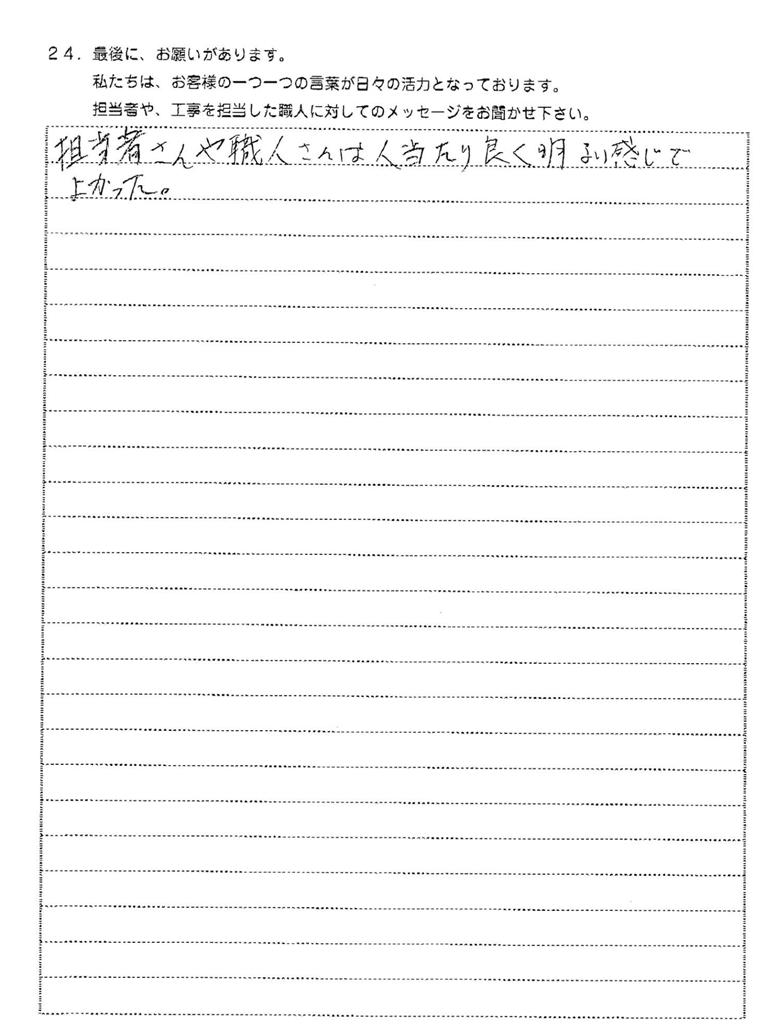 24．最後に、お願いがあります。
私たちは、お客様の一つ一つの言葉が日々の活力となっております。
担当者や、工事を担当した職人に対してのメッセージをお聞かせ下さい。
担当者さんや職人さんは人当たり良く明るい感じで
よかった。